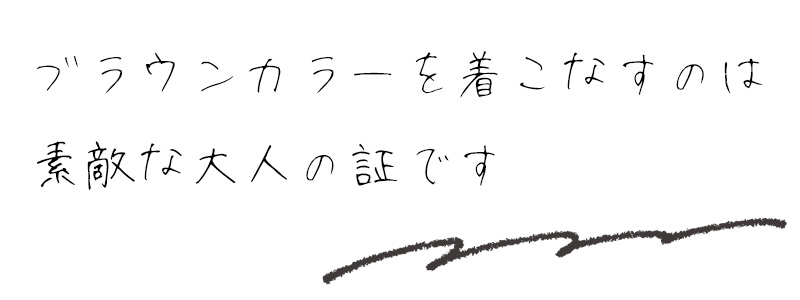 ブラウンカラーを着こなすのは
素敵な大人の証です